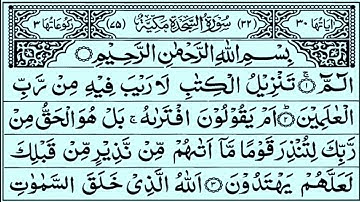 اٰیَاتُهَا ٣٠ (٣٢) سُوْرَةُ السَّجْدَةِ مَكِّیَّةٌ (٧٥) رُكُوْعَاتُهَا ٣
بِسْمِ اللّٰهِ الرَّحْمٰنِ الرَّحِیْمِ
الٓمّٓ ۚ﴿١﴾ تَنْزِیْلُ الْكِتٰبِ لَا رَیْبَ فِیْهِ مِنْ رَّبِّ
الْعٰلَمِیْنَ ﴿٢﴾ اَمْ یَقُوْلُوْنَ افْتَرٰىهُ ۚ بَلْ هُوَ الْحَقُّ مِنْ
رَّبِّكَ لِتُنْذِرَ قَوْمًا مَّاۤ اَتٰىهُمْ مِّنْ نَّذِیْرٍ مِّنْ قَبْلِكَ
لَعَلَّهُمْ یَهْتَدُوْنَ ﴿٣﴾ اَللّٰهُ الَّذِیْ خَلَقَ السَّمٰوٰتِ